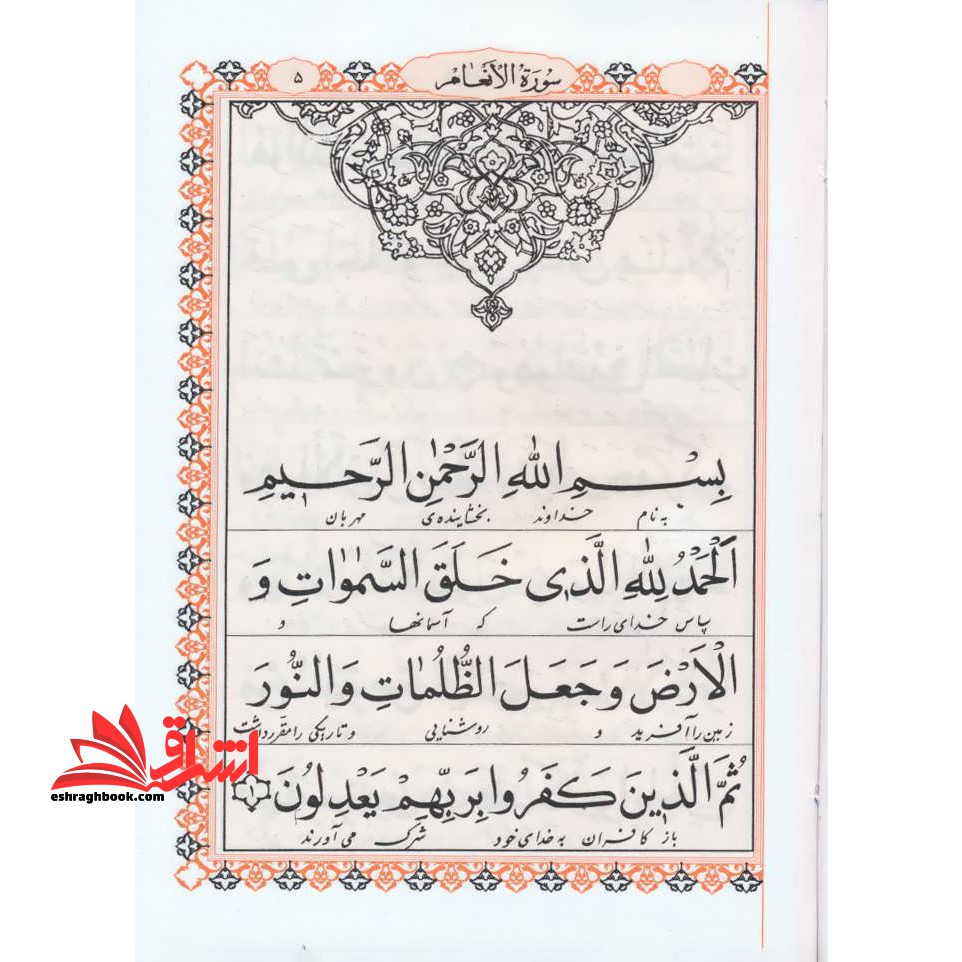 سورة الأنعام ۵
بِسْمِ اللهِ الرَّحْمٰنِ الرَّحيمِ
به نام خداوند بخشاینده‌ی مهربان
اَلْحَمْدُ لِلّٰهِ الَّذي خَلَقَ السَّمٰوٰاتِ وَ
سپاس خدای راست که آسمانها و
الْاَرْضَ وَ جَعَلَ الظُّلُمٰاتِ وَ النُّورَ
زمین را آفرید و روشنایی و تاریکی را مقرر داشت
ثُمَّ الَّذينَ كَفَرُوا بِرَبِّهِمْ يَعْدِلُونَ ۱
باز کافران به خدای خود شرک می‌آورند
اشراق
eshraghbook.com